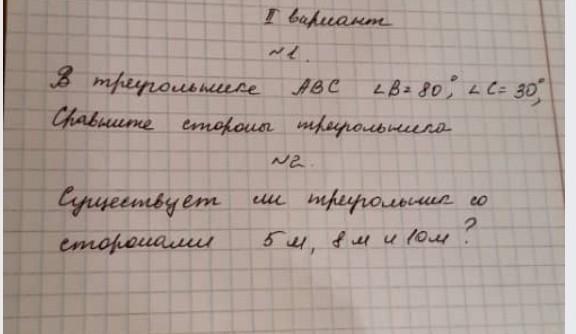 II вариант
№1.
В треугольнике ABC ∠B=80°, ∠C=30°,
Сравните стороны треугольника
№2.
Существует ли треугольник со
сторонами 5м, 8м и 10м?